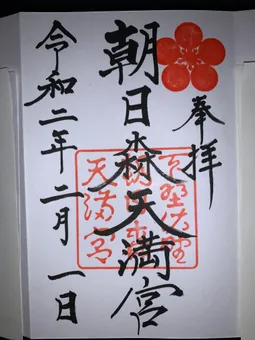 奉拝
朝日森天満宮
令和二年二月一日
下野佐野
朝日森
天満宮